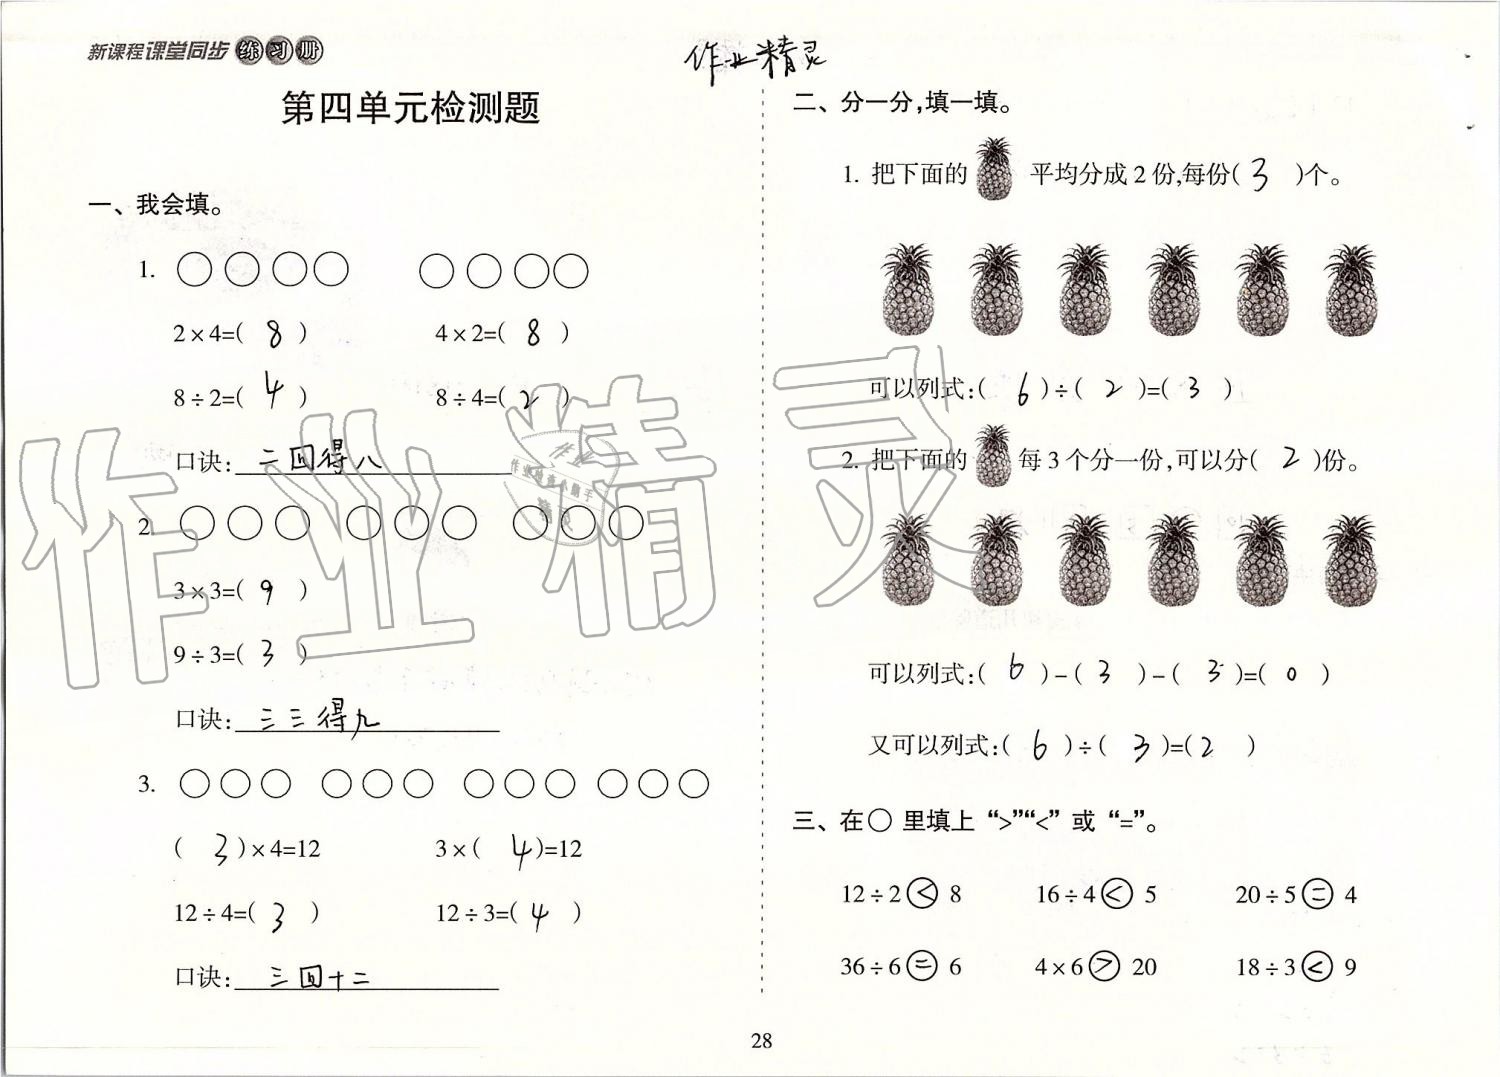 新课程课堂同步练习册
作业精灵
第四单元检测题
一、我会填。
1.
2×4=( 8 ) 4×2=( 8 )
8÷2=( 4 ) 8÷4=( 2 )
口诀: 二四得八
2.
3×3=( 9 )
9÷3=( 3 )
口诀: 三三得九
3.
( 3 )×4=12 3×( 4 )=12
12÷4=( 3 ) 12÷3=( 4 )
口诀: 三四十二
二、分一分,填一填。
1. 把下面的 平均分成2份,每份( 3 )个。
可以列式:( 6 )÷( 2 )=( 3 )
2. 把下面的 每3个分一份,可以分( 2 )份。
可以列式:( 6 )-( 3 )-( 3 )=( 0 )
又可以列式:( 6 )÷( 3 )=( 2 )
三、在○里填上“>”“<”或“=”。
12÷2 < 8 16÷4 < 5 20÷5 = 4
36÷6 = 6 4×6 > 20 18÷3 < 9
28
作业精灵